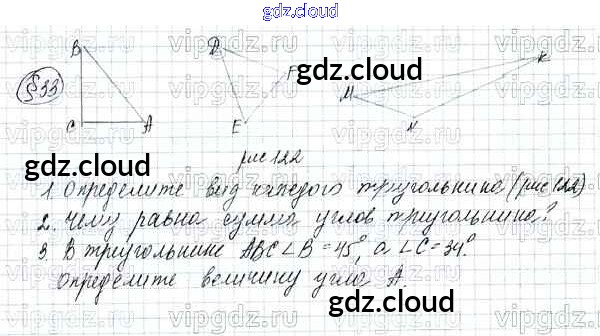 gdz.cloud
В D F K
§33 gdz.cloud M
С А E N
gdz.cloud рис 122 gdz.cloud
1. Определите вид каждого треугольника (рис 122)
2. Чему равна сумма углов треугольника?
3. В треугольнике ABC ∠B = 45°, а ∠C = 34°.
Определите величину угла А.